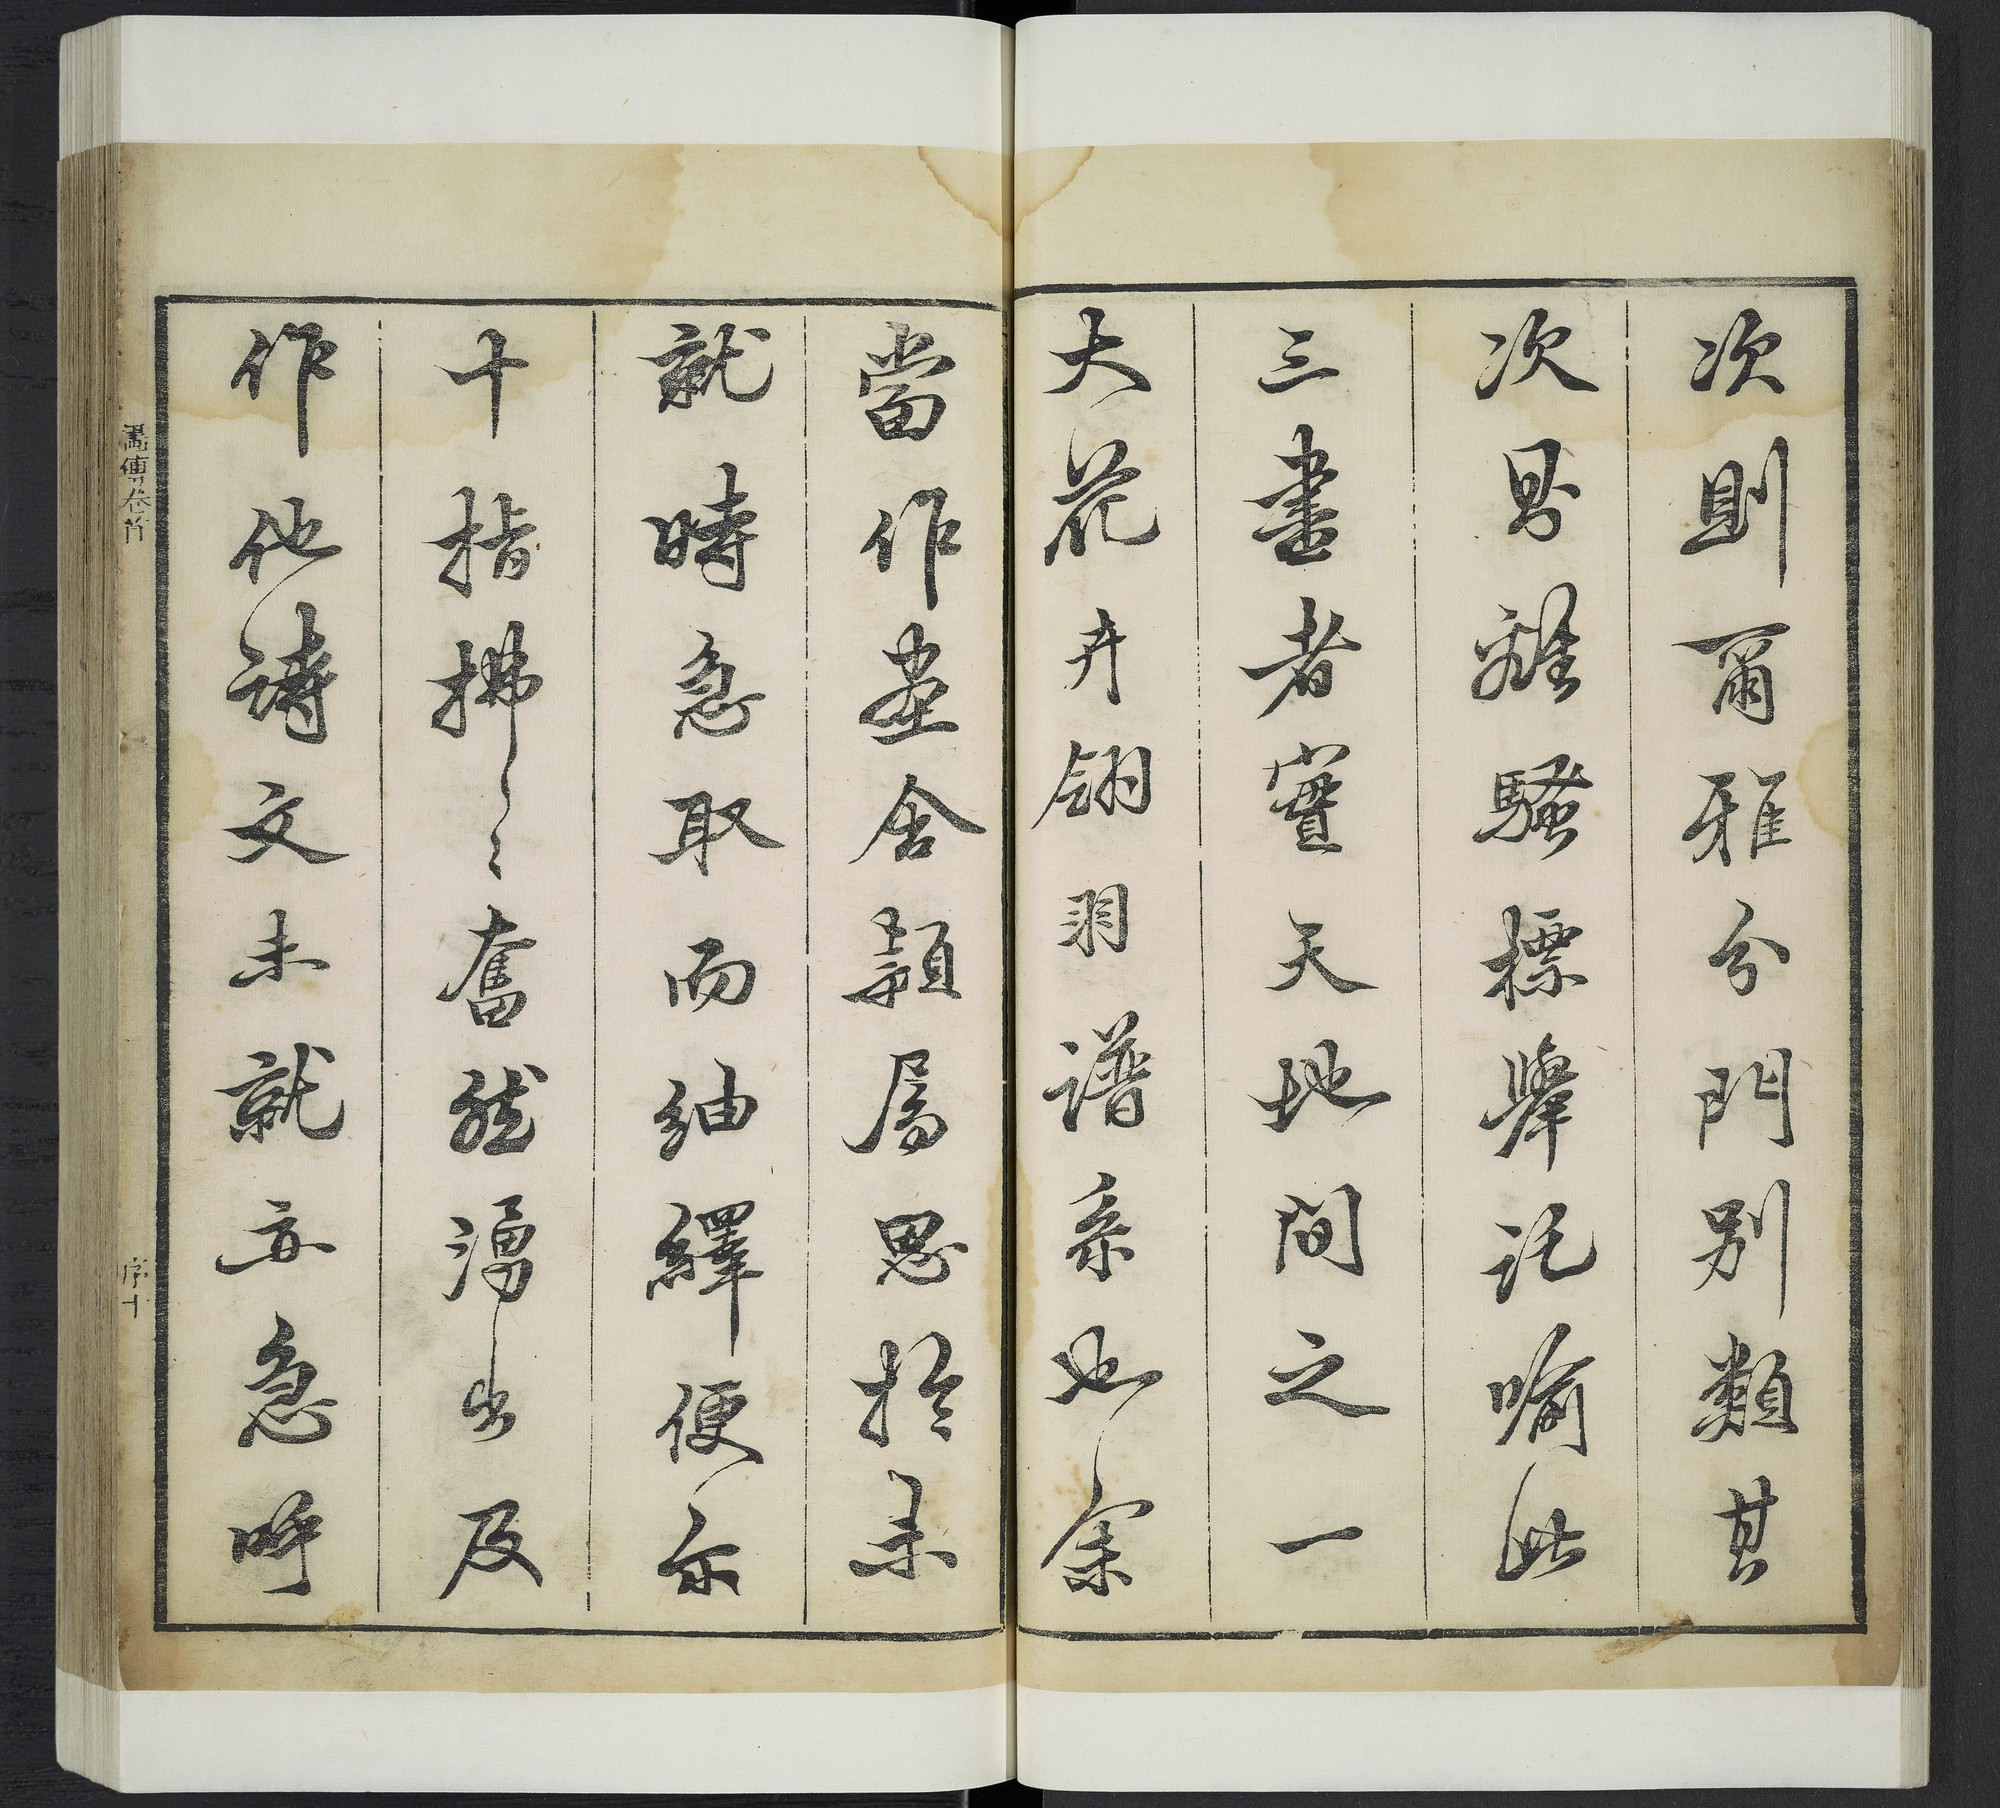 次則爾雅分門別類其
次則離騷標舉託喻此
三書者實天地間之一
大花卉翎羽譜系也余
當作畫舍穎屬思於未
就時急取而紬繹便尓
十指拂〻奮然湧出及
作他詩文未就亦急呼
畫傳卷首
序十